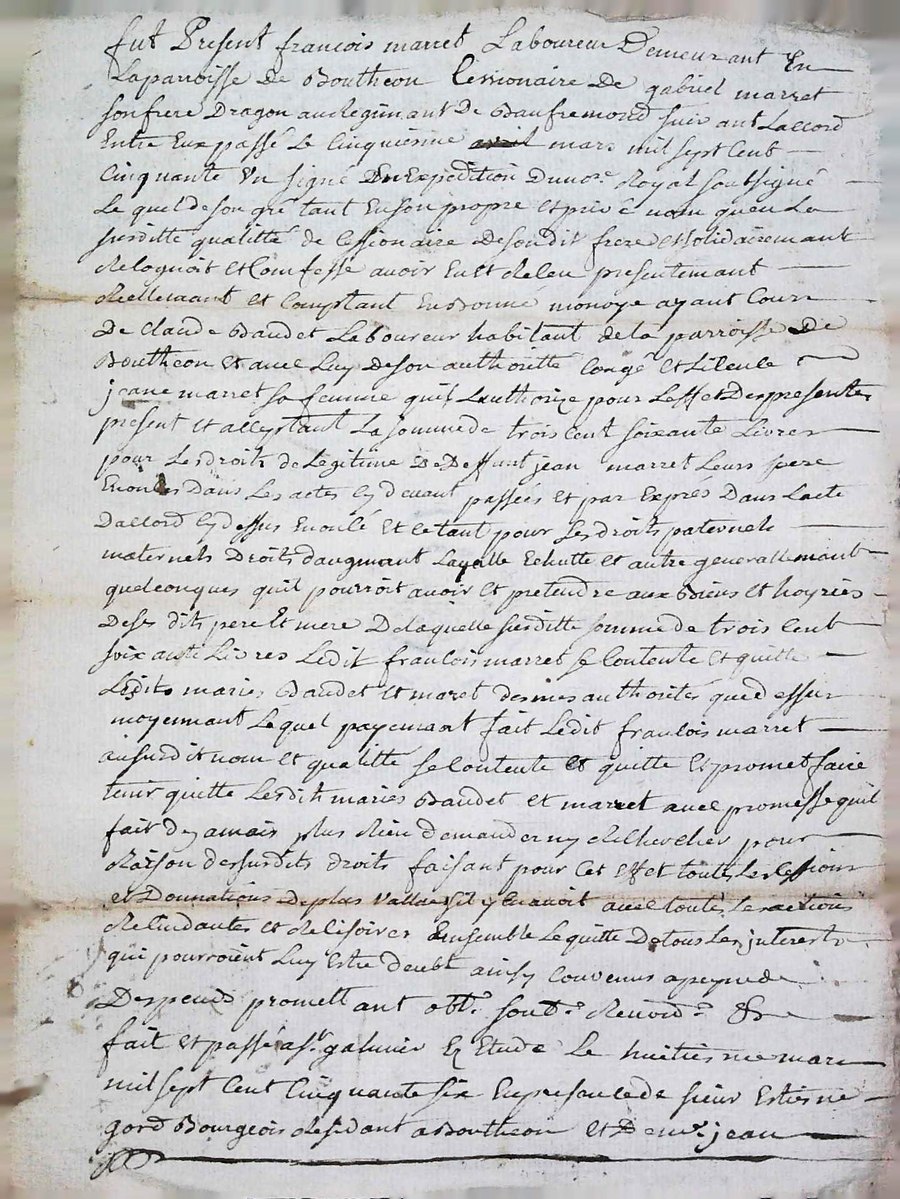 fut Present francois marret Laboureur Demeurant En
Laparroisse De Boutheon Cessionaire De gabriel marret
son frere Dragon au Regimant De Baufremond suivant Laccord
Entre Eux passé Le Cinquiesme mars mil sept Cent
Cinquante Un signé En Expedition Du nore Royal soubsigné
Le quel de son gré tant En son propre et privé nom qu'en La
susditte qualitté de Cessionaire De son dit frere et solidairemant
Reconnoit et Comfesse avoir Eu et Receu presentemant
Reellemant et Comptant En Bonne monoye ayant Cour
De Claude Baudet Laboureur habitant de la parroisse De
Bouthéon et avec Luy De son authoritté Congé et Licence
jeane marret sa femme quil Lauthorize pour Leffet Des presentes
present et acceptant La somme de trois Cent soixante Livres
pour Les droits de Legitime De Deffunt jean marret Leur pere
Enoncés Dans Les actes Cy devant passées Et par Exprés Dans Lacte
Daccord Cy dessus Enoncé Et ce tant pour Les droits paternels
maternels Droits daugmant Layolle Echutte et autre generallemant
quelconques quil pourroit avoir et pretendre aux Biens et hoyries
De ses dits pere Et mere De laquelle susditte somme de trois Cent
soixante Livres Ledit francois marret se Contente Et quitte
Lesdits mariés Baudet et maret des mes authorités que dessus
moyennant Lequel payemant fait Ledit francois marret
au susdit nom et qualitté se Contente Et quitte Et promet faire
tenir quitte Lesdits mariés Baudet et marret avec promesse quil
fait de jamais plus Rien demander ny Rechercher pour
Raison des susdits droits faisant pour Cet Effet toutes Les Cessions
et Donnations De plus Vallue sil y En avoit avec toutes Les actions
Rescindantes et Rescisoires Ensemble Le quitte De tous Les jnterests
qui pourroient Luy Estre deubt ainsy Convenus a peyne de
Despends promettant obt. soub. Renord. &
fait et passé a st galmier Ez Etude Le huitiesme mars
mil sept Cent Cinquante six En presence de sieur Estiene
gord Bourgeois Residant a Boutheon Et De mr. jean